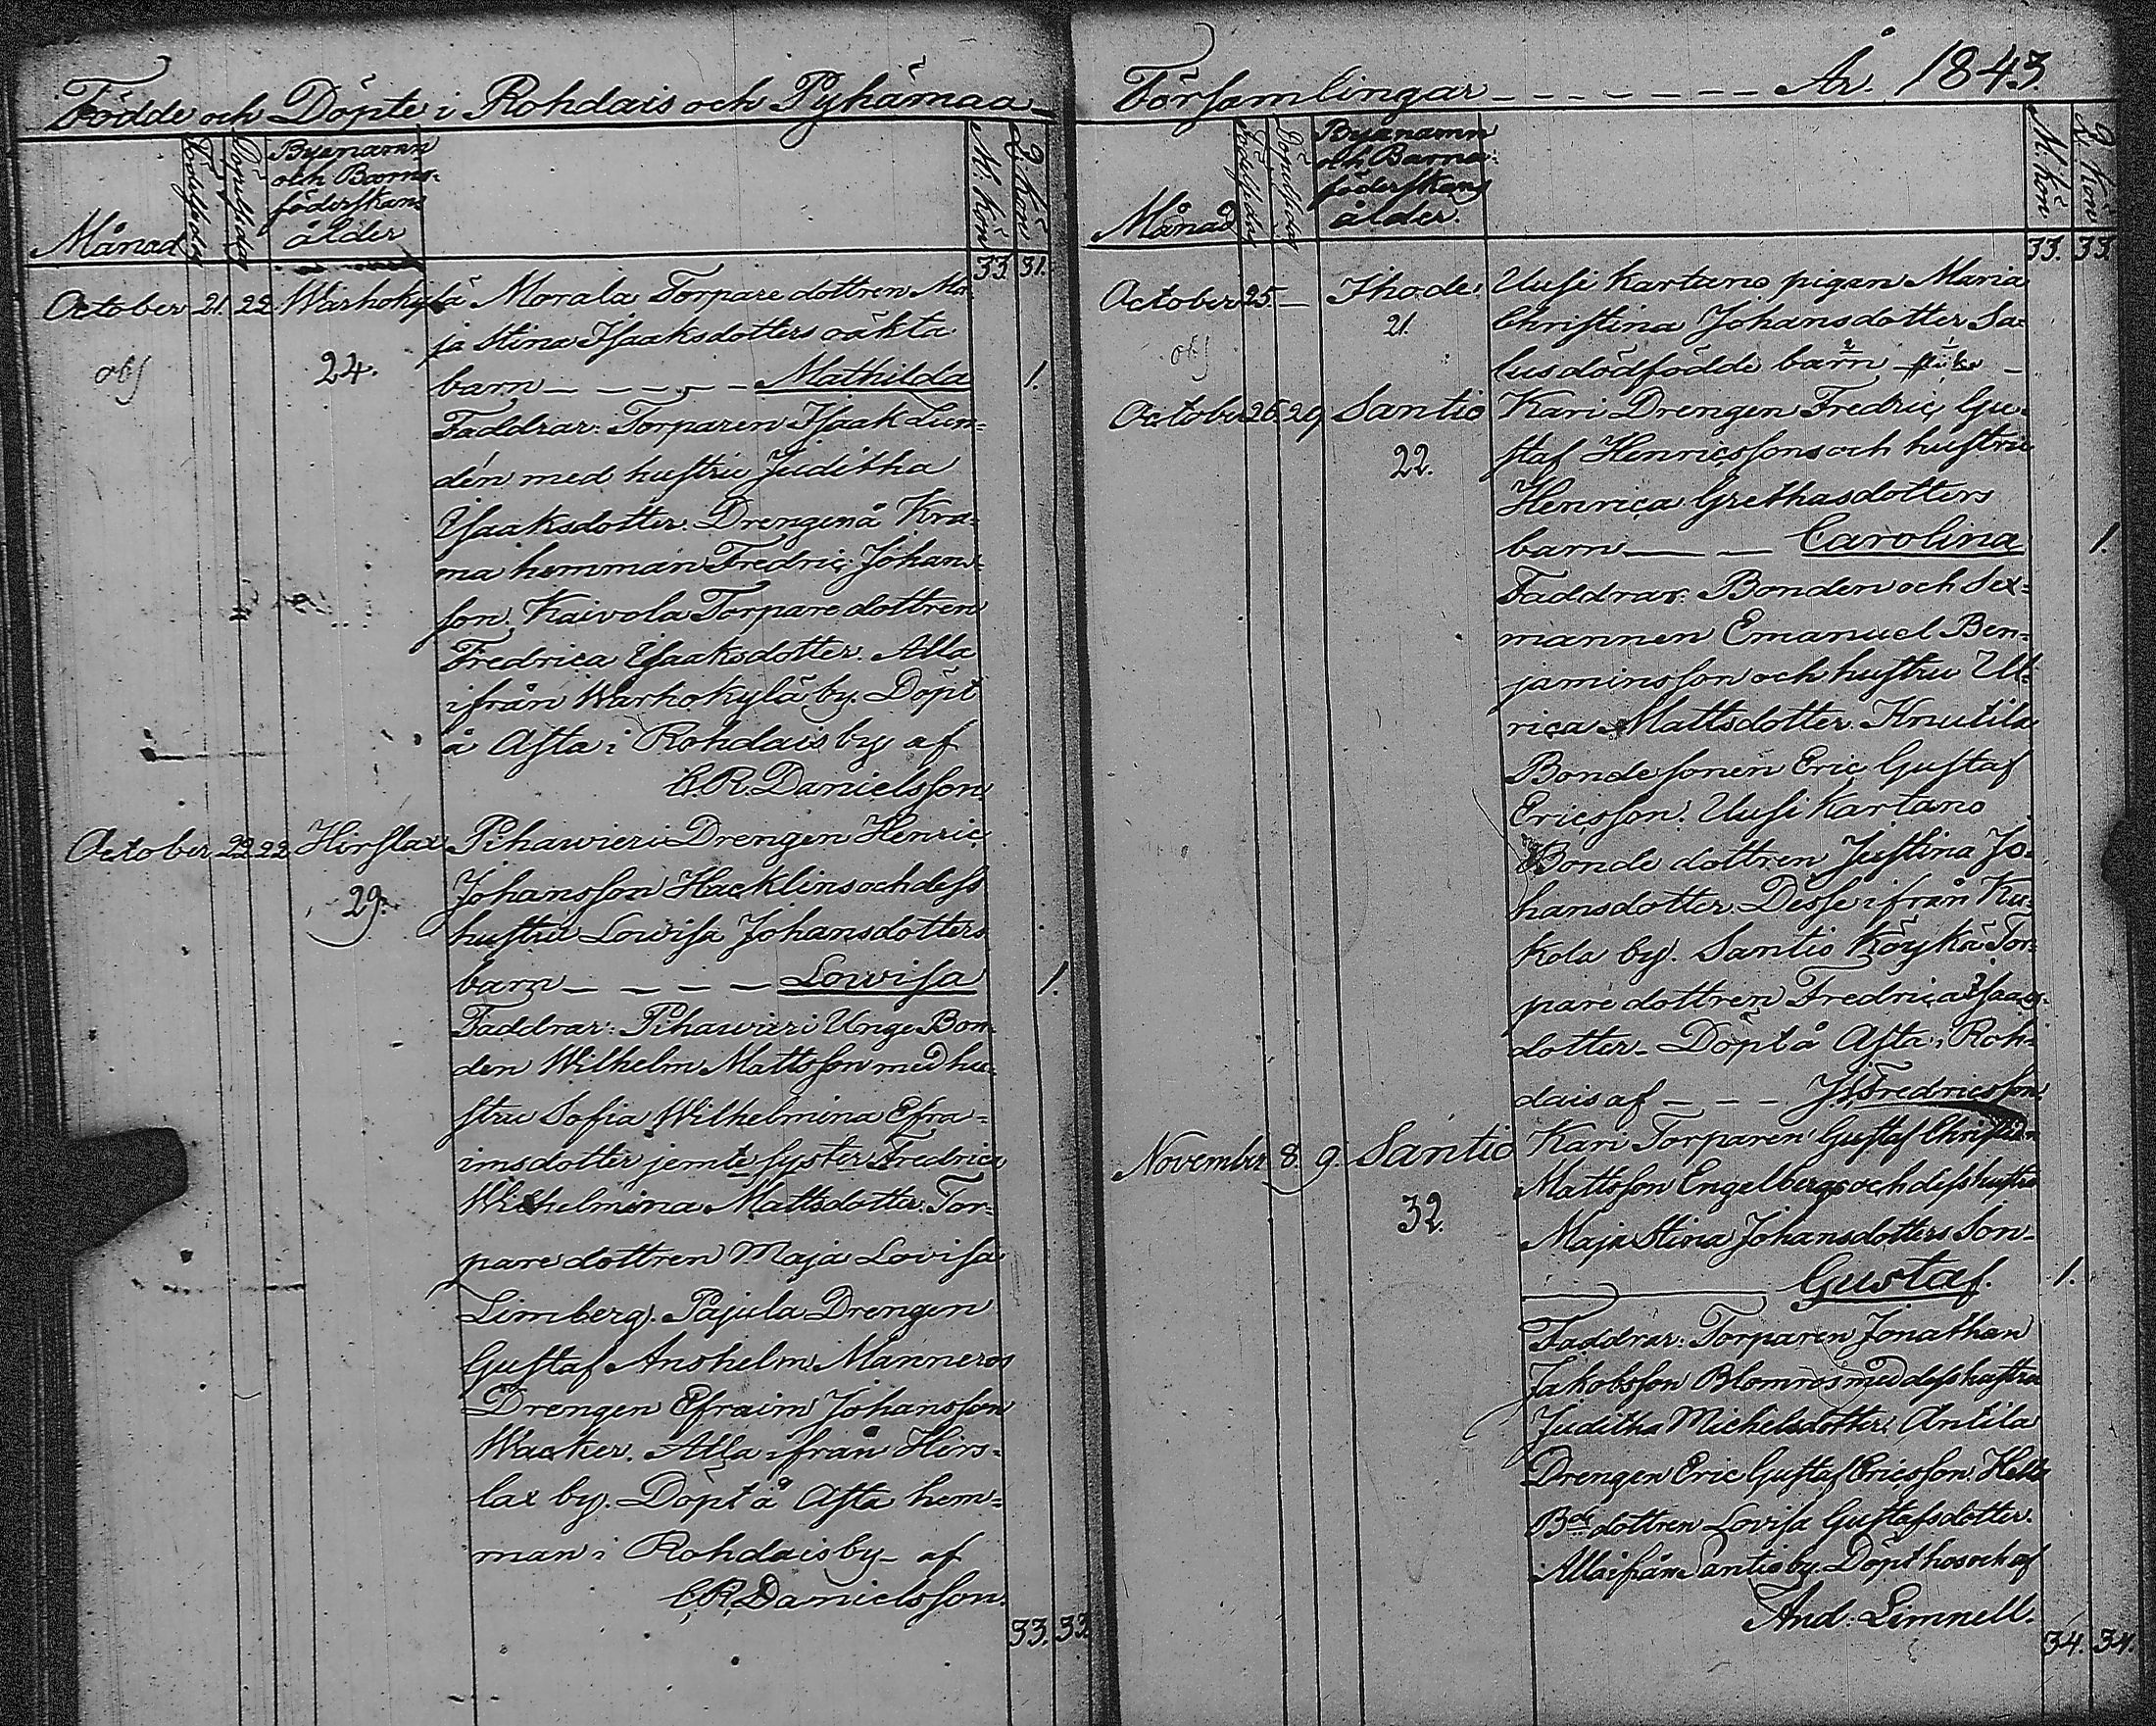 Födde och Döpte i Rohdais och Pyhämaa
Månad
Födelsedag
Döpelsedag
Byenamn
och Barns-
föderskans
ålder
M. kön
Q. kön
33. 31.
October 21. 22. Warhokylä Morala Torpare dottren Ma-
ja Stina Isaaksdotters oäkta
obs 24. barn _ _ _ _ _ Mathilda 1.
Faddrar: Torparen Isaak Lun-
dén med hustru Juditha
Isaaksdotter. Drengen å Kra-
ma hemman Fredric Johans-
son. Kaivola Torpare dottren
Fredrica Isaaksdotter. Alla
ifrån Warhokylä by. Döpt
å Asta i Rohdais by af
E.R. Danielsson.
October 22 22 Hirslax Pihawieri Drengen Henric
29. Johansson Hacklins och dess
hustru Lowisa Johansdotters
barn _ _ _ _ _ Lowisa 1.
Faddrar: Pihawieri Unge Bon-
den Wilhelm Mattsson med hu-
stru Sofia Wilhelmina Efra-
imsdotter jemte syster Fredrica
Wilhelmina Mattsdotter. Tor-
pare dottren Maja Lovisa
Limberg. Pajula Drengen
Gustaf Anshelm Manneros
Drengen Efraim Johansson
Wacker. Alla ifrån Hirs-
lax by. Döpt å Asta hem-
man i Rohdais by _ af
E.R. Danielsson.
33. 32
Församlingar _ _ _ _ _ _ _ År. 1843.
Månad
Födelsedag
Döpelsedag
Byanamn
och Barna-
föderskans
ålder.
M. kön
Q. kön
33. 33.
October 25. _ Ihode. Uusi Kartano pigan Maria
21. Christina Johansdotter Sa-
obs lus dödfödde barn
October 26. 29. Santio Kari Drengen Fredric Gu-
22. staf Henricssons och hustru
Henrica Grethasdotters
barn _ _ _ Carolina 1.
Faddrar: Bonden och Sex-
mannen Emanuel Ben-
jaminsson och hustru Ul-
rica Mattsdotter. Knutila
Bonde sonen Eric Gustaf
Ericsson. Uusi Kartano
Bonde dottren Justina Jo-
hansdotter. Desse ifrån Ku-
kola by. Santio Köykä Tor-
pare dottren Fredrica Isaacs-
dotter _ Döpt å Asta i Roh-
dais af _ _ _ Is Fredricsson.
November 8. 9. Santio Kari Torparen Gustaf Christian
32. Mattsson Engelbergs och dess hustru
Maja Stina Johansdotters Son
Gustaf. 1.
Faddrar: Torparen Jonathan
Jakobsson Blomros med dess hustru
Juditha Michelsdotter. Antila
Drengen Eric Gustaf Ericsson.
Bde dottren Lovisa Gustafsdotter.
Alla ifrån Santio by. Döpt hos och af
And: Limnell.
34. 34.